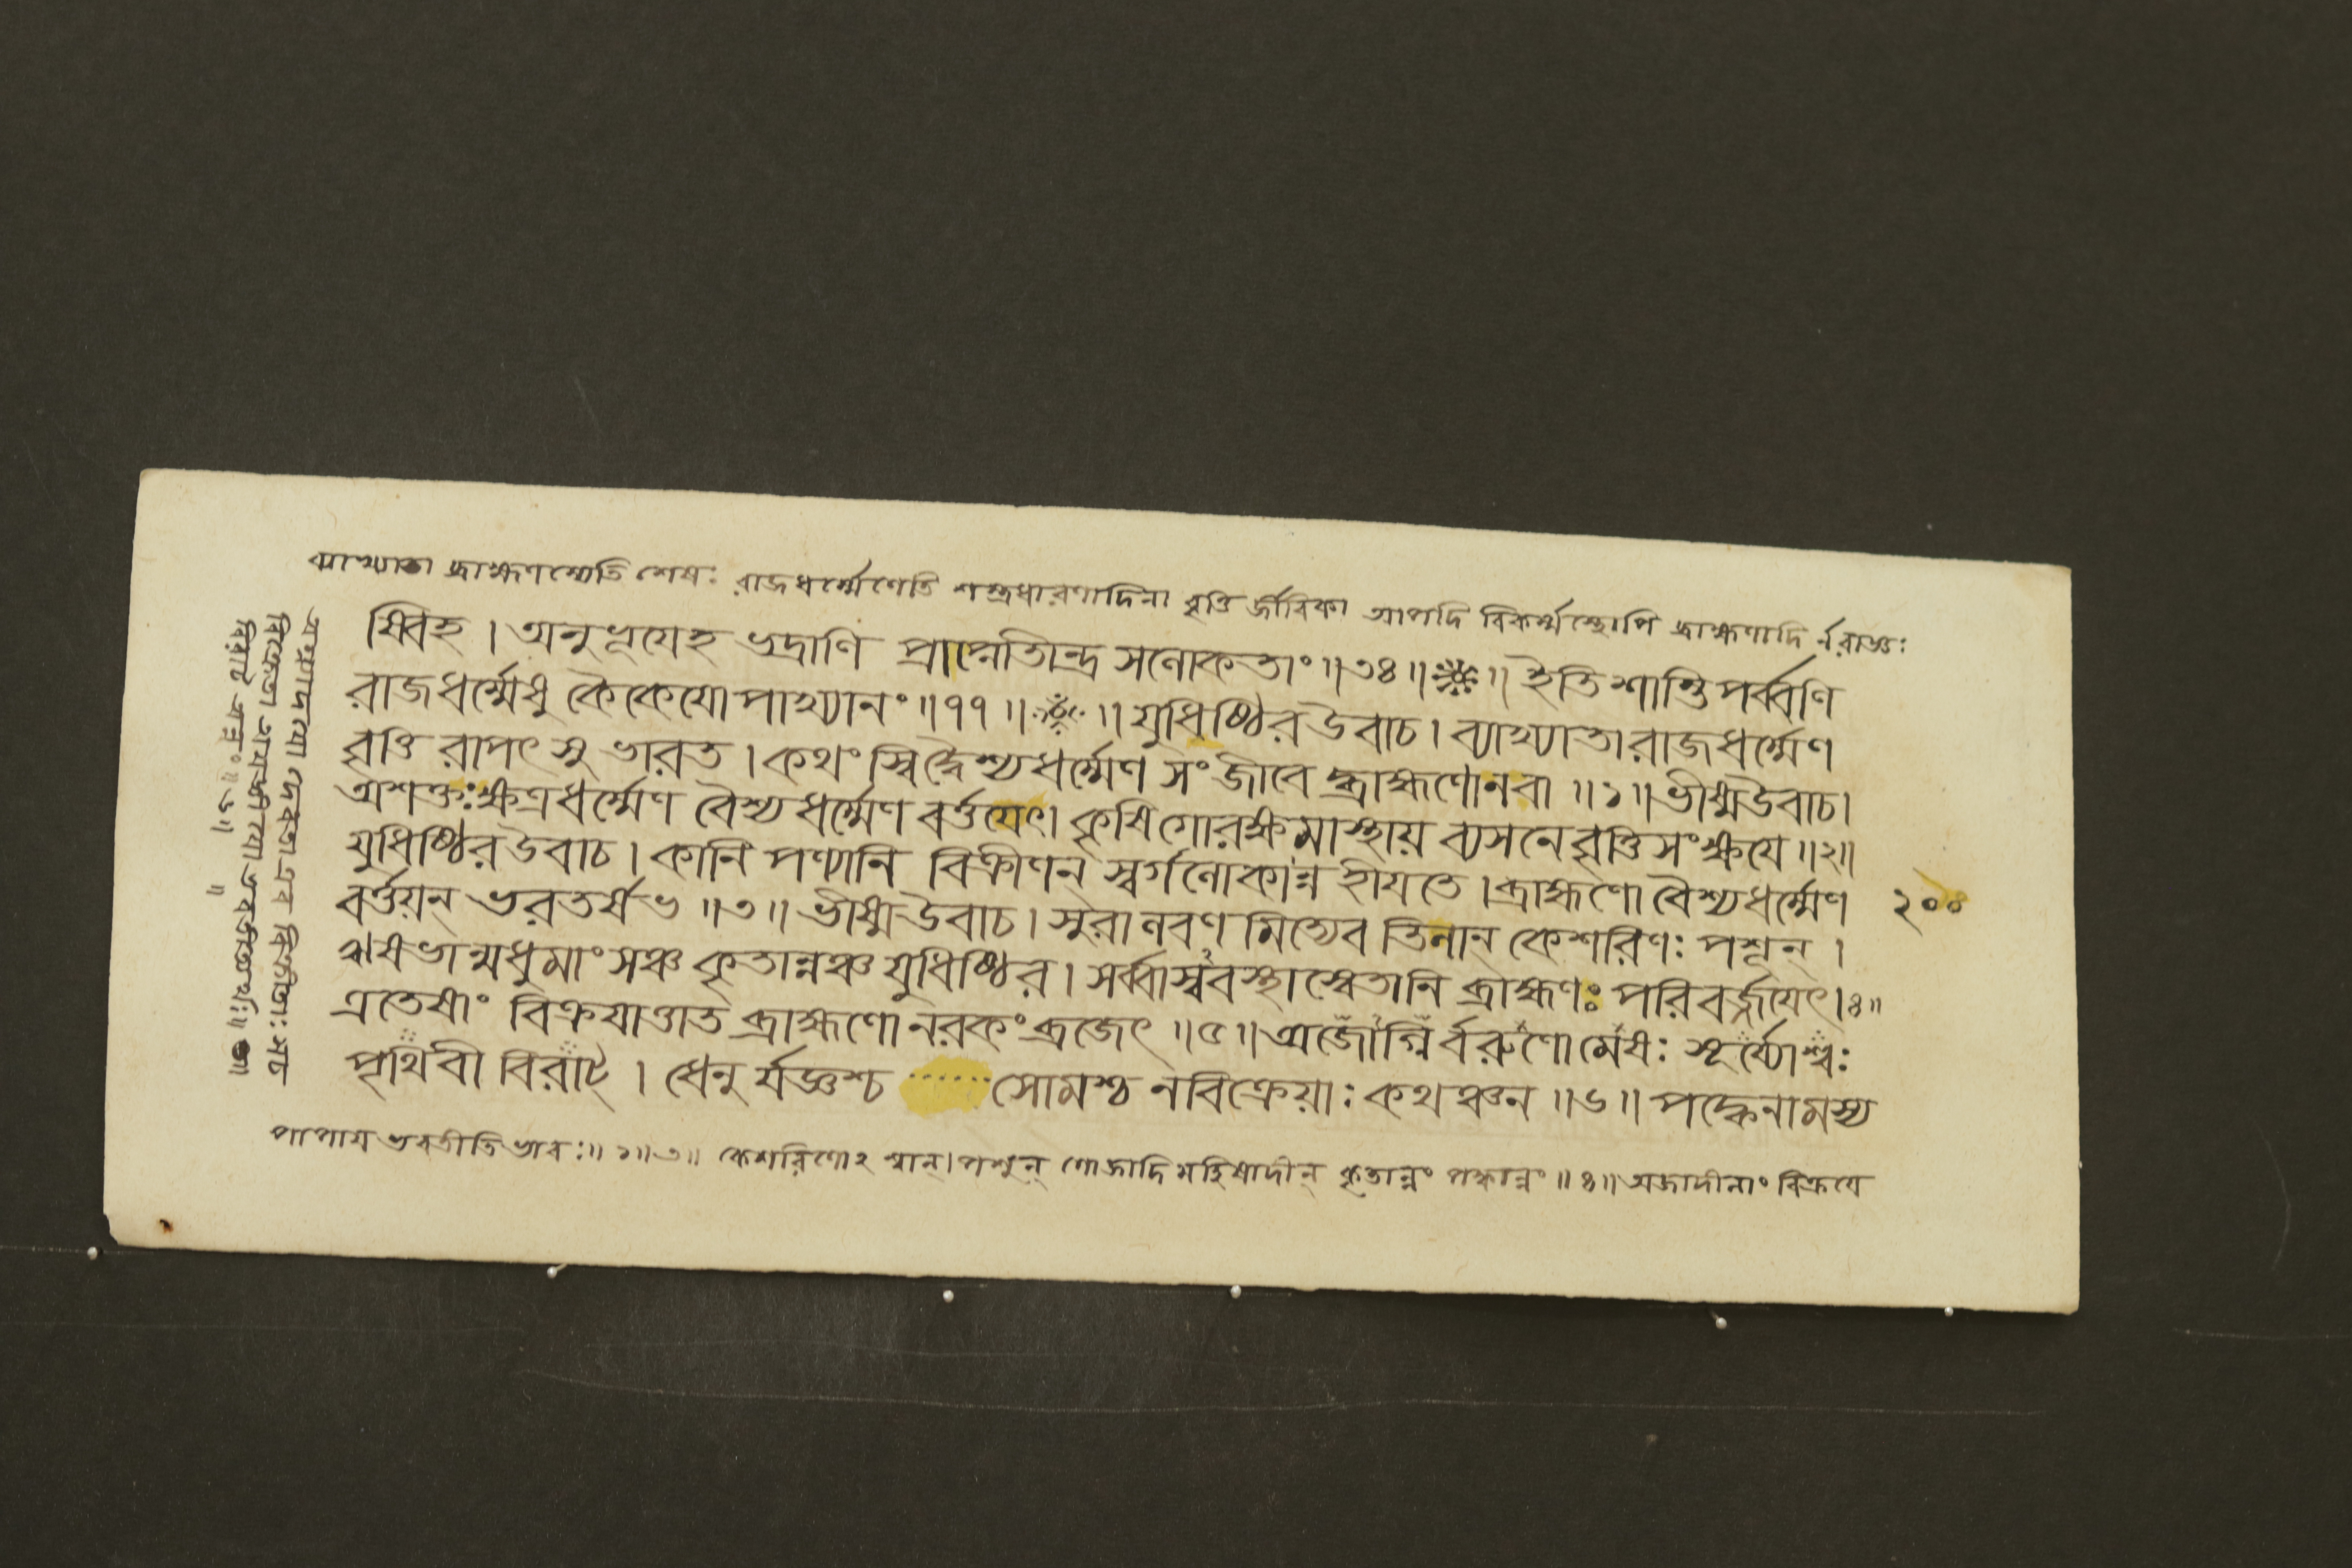 ব্যাখ্যাতা ব্রাহ্মণস্যেতি শেষঃ রাজধর্ম্মেণেতি শস্ত্রধারণাদিনা বৃত্তি র্জীবিকা আপদি বিকর্ম্মস্থোপি ব্রাহ্মণাদি র্নরাজ্ঞঃ
ষ্বিবহ । অনুভূযেহ ভদ্রাণি প্রাপ্নোতীন্দ্র সলোকতাং ॥৩৪॥ ॥ ইতি শান্তিপর্ব্বণি
রাজধর্ম্মেষু কৈকেযোপাখ্যানং ॥৭৭॥ ॥ যুধিষ্ঠির উবাচ । ব্যাখ্যাতা রাজধর্ম্মেণ
বৃত্তি রাপৎ সু ভারত । কথং স্বিদ্বৈশ্যধর্ম্মেণ সংজীবে দ্ব্রাহ্মণোনবা ॥১॥ ভীষ্মউবাচ ।
অশক্তঃক্ষত্রধর্ম্মেণ বৈশ্যধর্ম্মেণ বর্ত্তযেৎ । কৃষিগোরক্ষমাস্থায় ব্যসনেবৃত্তিসংক্ষযে ॥২॥
যুধিষ্ঠির উবাচ । কানি পণ্যানি বিক্রীণন্ স্বর্গলোকান্ন হীযতে । ব্রাহ্মণো বৈশ্যধর্ম্মেণ
২০০
বর্ত্তয়ন্ ভরতর্ষভ ॥৩॥ ভীষ্মউবাচ । সুরালবণ মিত্যেব তিলান্ কেশরিণঃ পশূন্ ।
ঋষভান্মধুমাংসঞ্চ কৃতান্নঞ্চ যুধিষ্ঠির । সর্ব্বাস্ববস্থাস্বেতানি ব্রাহ্মণঃ পরিবর্জ্জযেৎ ।৪॥
এতেষাং বিক্রযাত্তাত ব্রাহ্মণো নরকং ব্রজেৎ ॥৫॥ অজোগ্নির্বরুণো মেষঃ সূর্য্যোশ্বঃ
পৃথিবী বিরাট্ । ধেনু র্যজ্ঞশ্চ সোমশ্চ নবিক্রেয়াঃ কথঞ্চন ॥৬॥ পক্বেনামস্য
পাপায ভবতীতি ভাবঃ॥ ১॥৩॥ কেশরিণোঽ শ্বান্ । পশুন্ গোজাদি মহিষাদীন্ কৃতান্নং পক্বান্নং ॥৪॥ অজাদীনাং বিক্রযে
বিরাট অন্নং॥৬॥